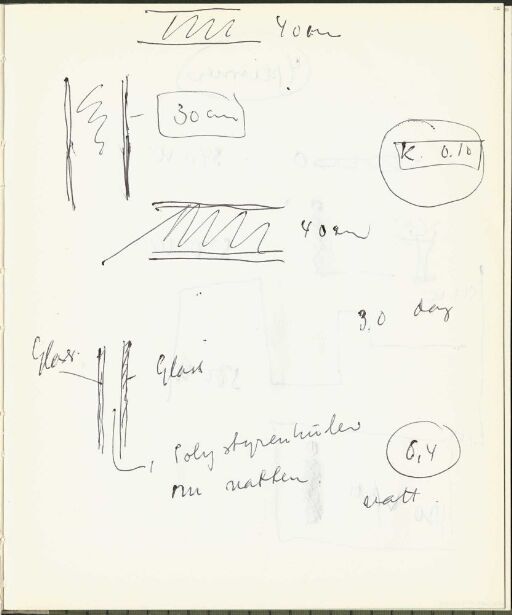 40 cm
30 cm
K. 0.10
40 cm
3.0 dag
Glass
Glass
Polystyrenkuler
om natten.
0,4
natt.